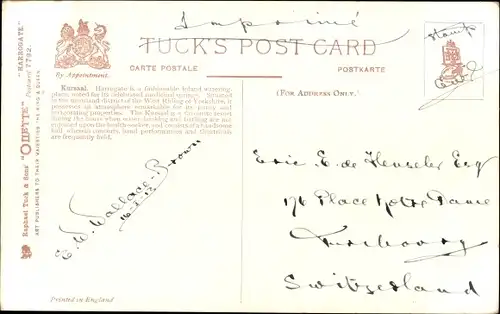 Imprimé
TUCK'S POST CARD
CARTE POSTALE
POSTKARTE
By Appointment.
(FOR ADDRESS ONLY.)
stamp
"HARROGATE"
Raphael Tuck & Sons' "OILETTE" Postcard 7792.
ART PUBLISHERS TO THEIR MAJESTIES THE KING & QUEEN
Kursaal. Harrogate is a fashionable inland watering-
place, noted for its celebrated medicinal springs. Situated
in the moorland district of the West Riding of Yorkshire, it
possesses an atmosphere remarkable for its purity and
invigorating properties. The Kursaal is a favourite resort
during the hours when water drinking and bathing are not
enjoined upon the health-seeker, and consists of a handsome
hall wherein concerts, band performances and theatricals
are frequently held.
E. W. Wallace-Brown
Eric E. de Henseler Esq
176 Place Notre Dame
Switzerland
Printed in England